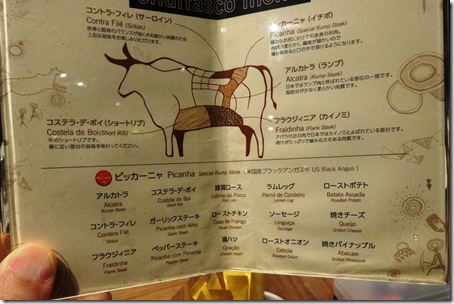 Churrasco menu
コントラ・フィレ (サーロイン)
Contra Filé (Sirloin)
ピッカーニャ (イチボ)
Picanha (Special Rump Steak)
アルカトラ (ランプ)
Alcatra (Rump Steak)
コステラ・デ・ボイ (ショートリブ)
Costela de Boi (Short Rib)
牛のショートリブです。
骨に近い部分の旨味を味わってください。
フラウジィーニャ (カイノミ)
Fraldinha (Flank Steak)
ピッカーニャ Picanha Special Rump Steak (米国産ブラックアンガス牛 US Black Angus)
アルカトラ
Alcatra
Rump Steak
コステラ・デ・ボイ
Costela de Boi
Short Rib
豚肩ロース
Lombo de Porco
Pork Loin
ラムレッグ
Pernil de Cordeiro
Lamb Leg
ローストポテト
Batata Assada
Roasted Potato
コントラ・フィレ
Contra Filé
Sirloin
ガーリックステーキ
Picanha com Alho
Garlic Steak
ローストチキン
Coxa de Frango
Roast Chicken
ソーセージ
Linguiça
Sausage
焼きチーズ
Queijo
Grilled Cheese
フラウジィーニャ
Fraldinha
Flank Steak
ペッパーステーキ
Picanha com Pimenta
Pepper Steak
鶏ハツ
Coração
Chicken Heart
ローストオニオン
Cebola
Roasted Onion
焼きパイナップル
Abacaxi
Grilled Pineapple